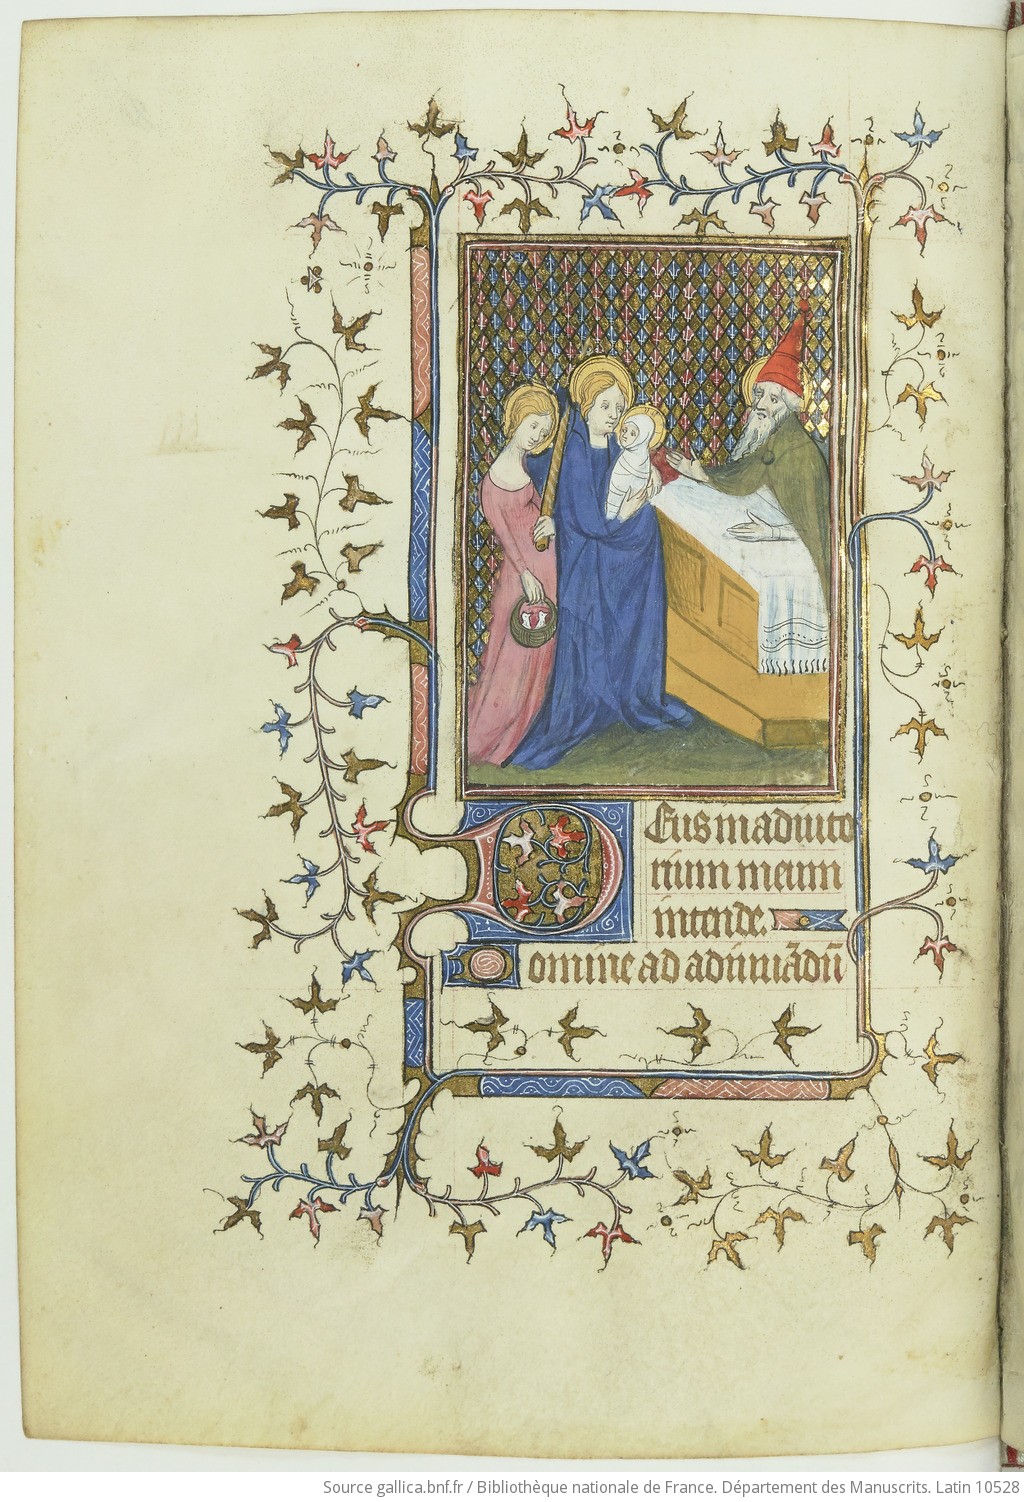 Deus in adiuto
rium meum
intende.
Domine ad adiuuãdũ
Source gallica.bnf.fr / Bibliothèque nationale de France. Département des Manuscrits. Latin 10528